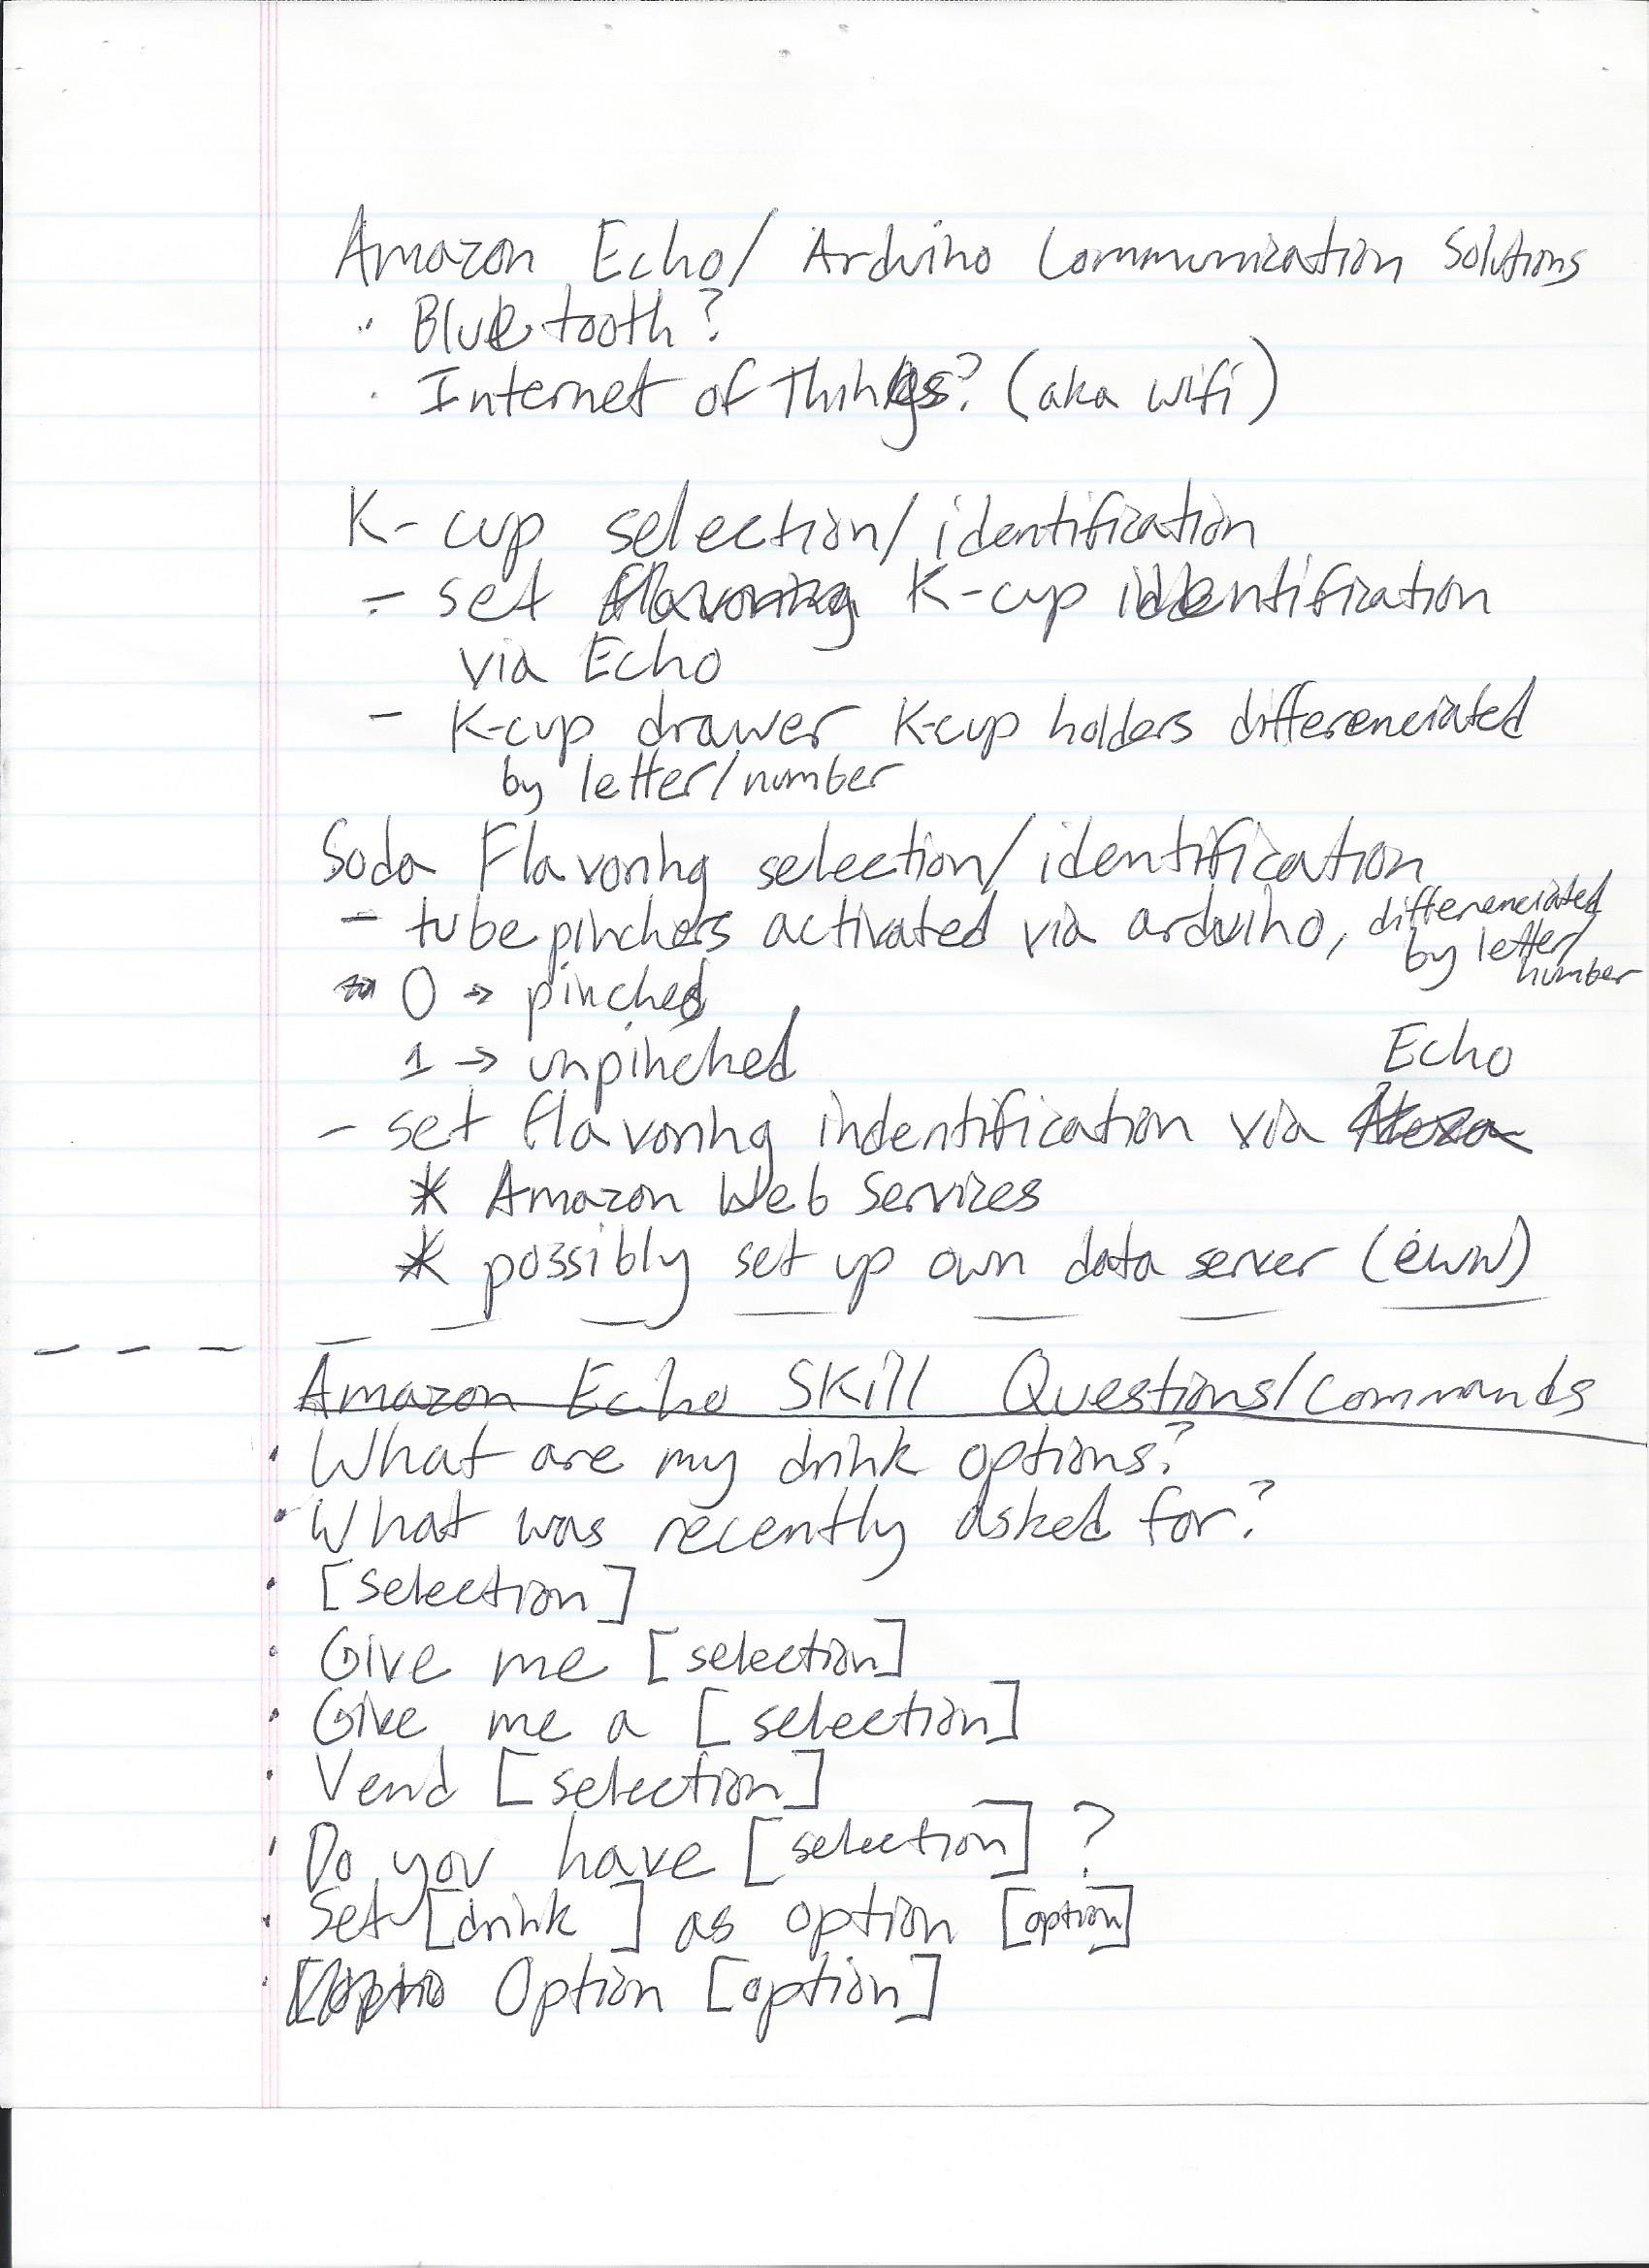 Amazon Echo/ Arduino Communication Solutions
· Bluetooth?
· Internet of Things? (aka wifi)
K-cup selection/identification
- set flavoring K-cup identification
via Echo
- K-cup drawer K-cup holders differenciated
by letter/number
Soda Flavoring selection/identification
- tube pinchers activated via arduino, differenciated
by letter/
number
0 → pinched
1 → unpinched
Echo
- set flavoring indentification via Alexa
* Amazon Web Services
* possibly set up own data server (eww)
Amazon Echo Skill Questions/Commands
· What are my drink options?
· What was recently asked for?
· [selection]
· Give me [selection]
· Give me a [selection]
· Vend [selection]
· Do you have [selection]?
· Set [drink ] as option [option]
· Option [option]